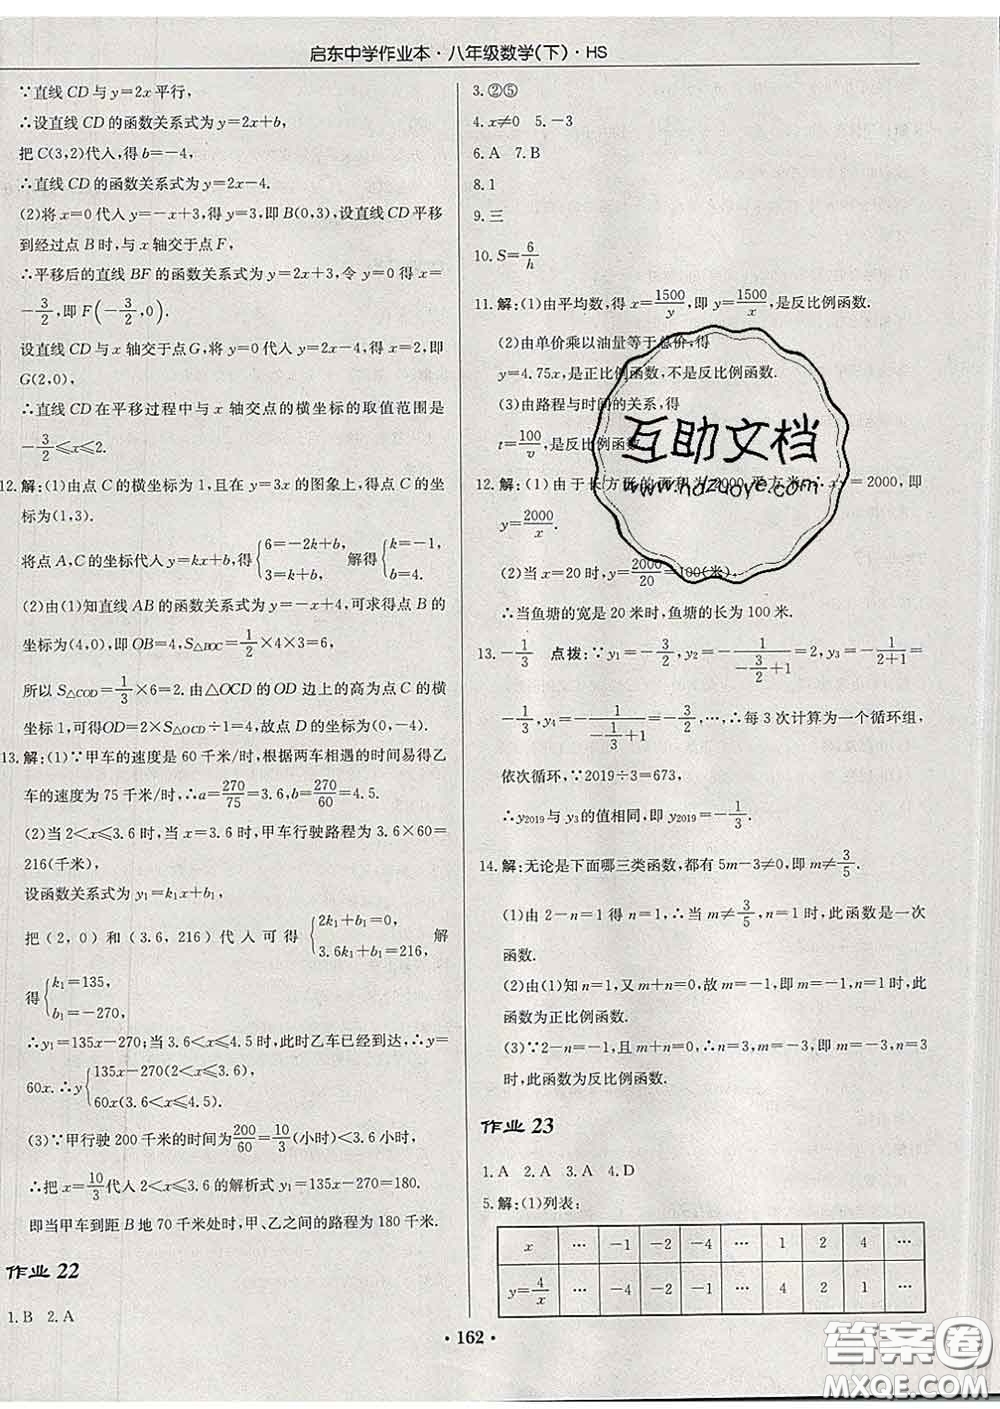 启东中学作业本·八年级数学(下)·HS
∵直线CD与y=2x平行,
∴设直线CD的函数关系式为y=2x+b,
把C(3,2)代入,得b=-4,
∴直线CD的函数关系式为y=2x-4.
(2)将x=0代入y=-x+3,得y=3,即B(0,3),设直线CD平移
到经过点B时,与x轴交于点F,
∴平移后的直线BF的函数关系式为y=2x+3,令y=0得x=
-3/2,即F(-3/2,0).
设直线CD与x轴交于点G,将y=0代入y=2x-4,得x=2,即
G(2,0),
∴直线CD在平移过程中与x轴交点的横坐标的取值范围是
-3/2≤x≤2.
12.解:(1)由点C的横坐标为1,且在y=3x的图象上,得点C的坐
标为(1,3).
将点A,C的坐标代入y=kx+b,得{6=-2k+b, 3=k+b, 解得{k=-1, b=4.
(2)由(1)知直线AB的函数关系式为y=-x+4,可求得点B的
坐标为(4,0),即OB=4,S△BOC=1/2×4×3=6,
所以S△COD=1/3×6=2.由△OCD的OD边上的高为点C的横
坐标1,可得OD=2×S△OCD÷1=4,故点D的坐标为(0,-4).
13.解:(1)∵甲车的速度是60千米/时,根据两车相遇的时间易得乙
车的速度为75千米/时,∴a=270/75=3.6,b=270/60=4.5.
(2)当2<x≤3.6时,当x=3.6时,甲车行驶路程为3.6×60=
216(千米),
设函数关系式为y₁=k₁x+b₁,
把(2,0)和(3.6,216)代入可得{2k₁+b₁=0, 3.6k₁+b₁=216, 解
得{k₁=135, b₁=-270,
∴y₁=135x-270;当3.6<x≤4.5时,此时乙车已经到达,∴y=
60x.∴y{135x-270(2<x≤3.6) 60x(3.6<x≤4.5).
(3)∵甲行驶200千米的时间为200/60=10/3(小时)<3.6小时,
∴把x=10/3代入2<x≤3.6的解析式y₁=135x-270=180.
即当甲车到距B地70千米处时,甲、乙之间的路程为180千米.
作业22
1.B 2.A
3.②⑤
4.x≠0 5.-3
6.A 7.B
8.1
9.三
10.S=6/h
11.解:(1)由平均数,得x=1500/y,即y=1500/x,是反比例函数.
(2)由单价乘以油量等于总价,得
y=4.75x,是正比例函数,不是反比例函数.
(3)由路程与时间的关系,得
t=100/v,是反比例函数.
12.解:(1)由于长方形的面积为2000平方米,∴xy=2000,即
y=2000/x.
(2)当x=20时,y=2000/20=100(米),
∴当鱼塘的宽是20米时,鱼塘的长为100米.
13.-1/3 点拨:∵y₁=-3/2,y₂=-1/(-3/2+1)=2,y₃=-1/(2+1)=
-1/3,y₄=-1/(-1/3+1)=-3/2,…,∴每3次计算为一个循环组,
依次循环,∵2019÷3=673,
∴y₂₀₁₉与y₃的值相同,即y₂₀₁₉=-1/3.
14.解:无论是下面哪三类函数,都有5m-3≠0,即m≠3/5.
(1)由2-n=1得n=1,∴当m≠3/5,n=1时,此函数是一次
函数.
(2)由(1)知n=1,又m+n=0,故m=-1,即m=-1,n=1时,此
函数为正比例函数.
(3)∵2-n=-1,且m+n=0,∴n=3,m=-3,即m=-3,n=3
时,此函数为反比例函数.
作业23
1.A 2.A 3.A 4.D
5.解:(1)列表:
x … -1 -2 -4 … 1 2 4 …
y=4/x … -4 -2 -1 … 4 2 1 …
·162·
互助文档
www.hdzuoye.com
答案圈
MXQE.COM